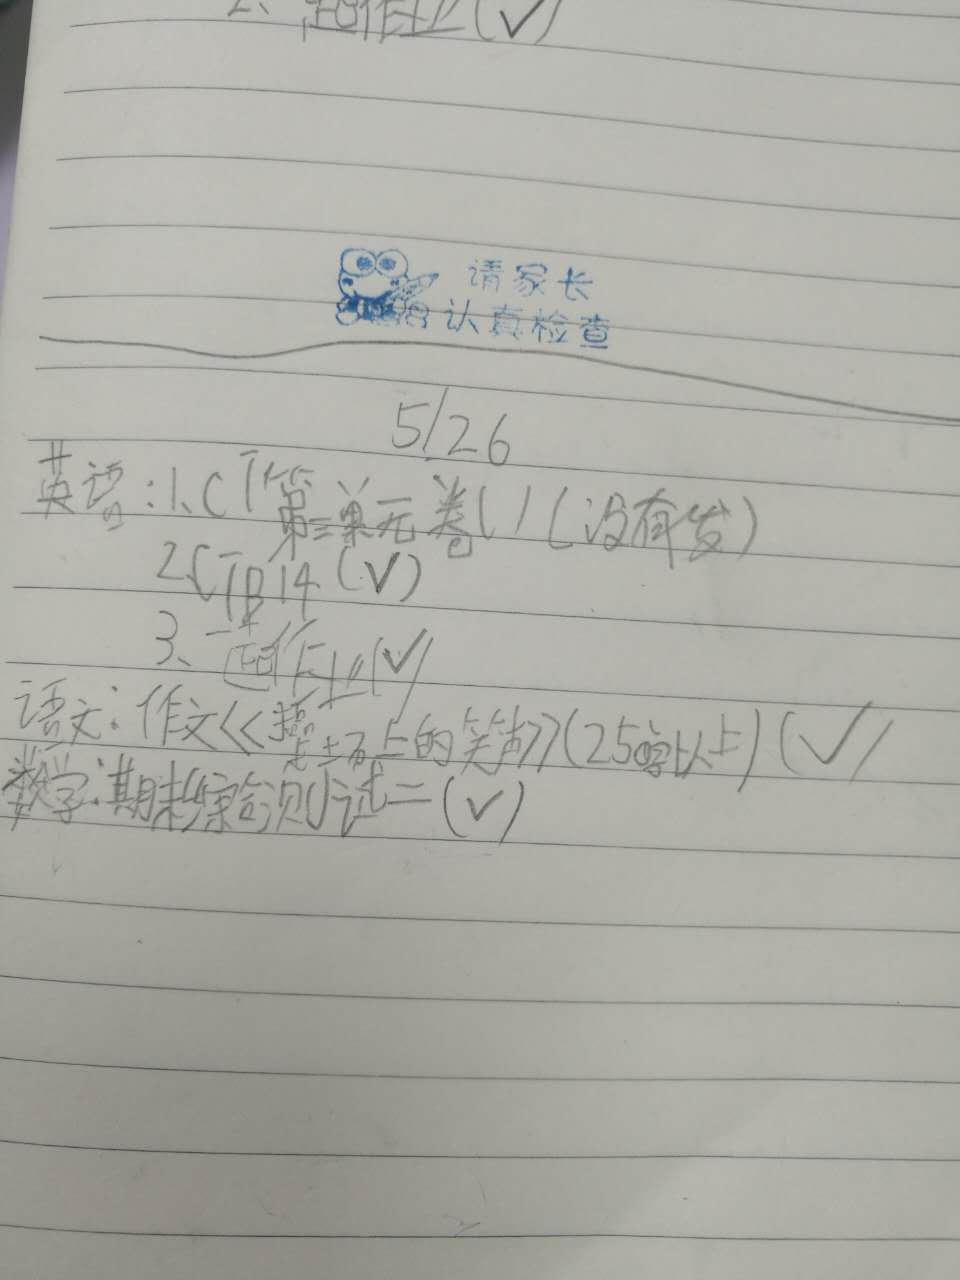 2、 作业(✓)
请家长
认真检查
5/26
英语:1、CT第三单元卷( )(没有发)
2、CTB14(✓)
3、一起作业(✓)
语文:作文《操场上的笑声》(250字以上)(✓)
数学:期末综合测试二(✓)